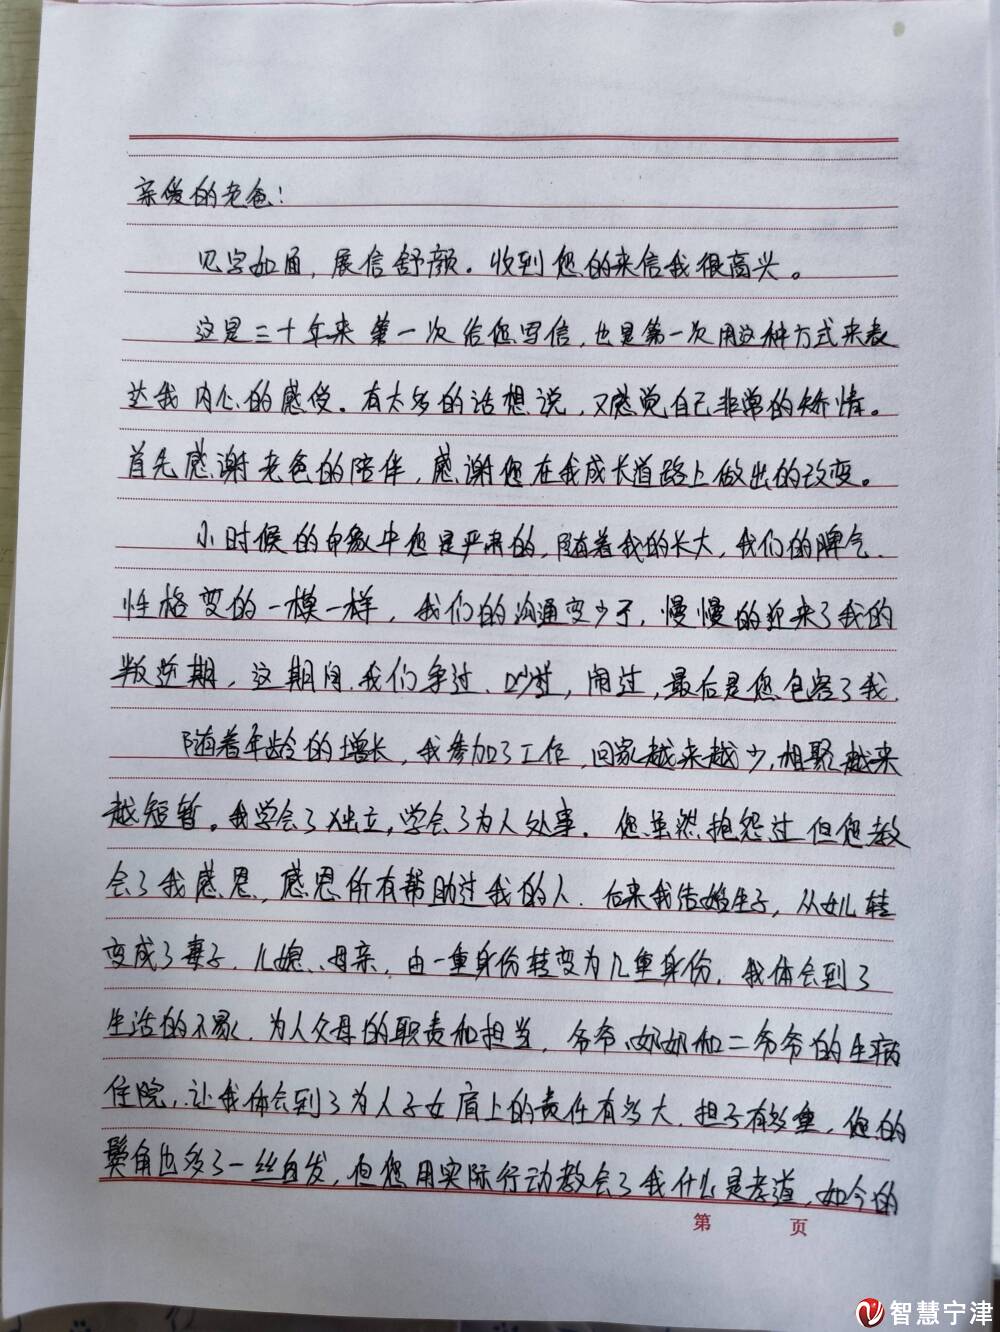 亲爱的老爸：
见字如面，展信舒颜。收到您的来信我很高兴。
这是三十年来第一次给您写信，也是第一次用这种方式来表
达我内心的感受。有太多的话想说，又感觉自己非常的矫情。
首先感谢老爸的陪伴，感谢您在我成长道路上做出的改变。
小时候的印象中您是严肃的，随着我的长大，我们的脾气、
性格变的一模一样，我们的沟通变少了，慢慢的迎来了我的
叛逆期，这期间，我们争过、吵过，闹过，最后是您包容了我.
随着年龄的增长，我参加了工作，回家越来越少，相聚越来
越短暂。我学会了独立，学会了为人处事. 您虽然抱怨过但您教
会了我感恩，感恩所有帮助过我的人. 后来我结婚生子，从女儿转
变成了妻子、儿媳、母亲，由一重身份转变为几重身份，我体会到了
生活的不易，为人父母的职责和担当，爷爷、奶奶和二爷爷的生病
住院，让我体会到了为人子女肩上的责任有多大，担子有多重，您的
鬓角也多了一丝白发，但您用实际行动教会了我什么是孝道，如今的
第 页
智慧宁津